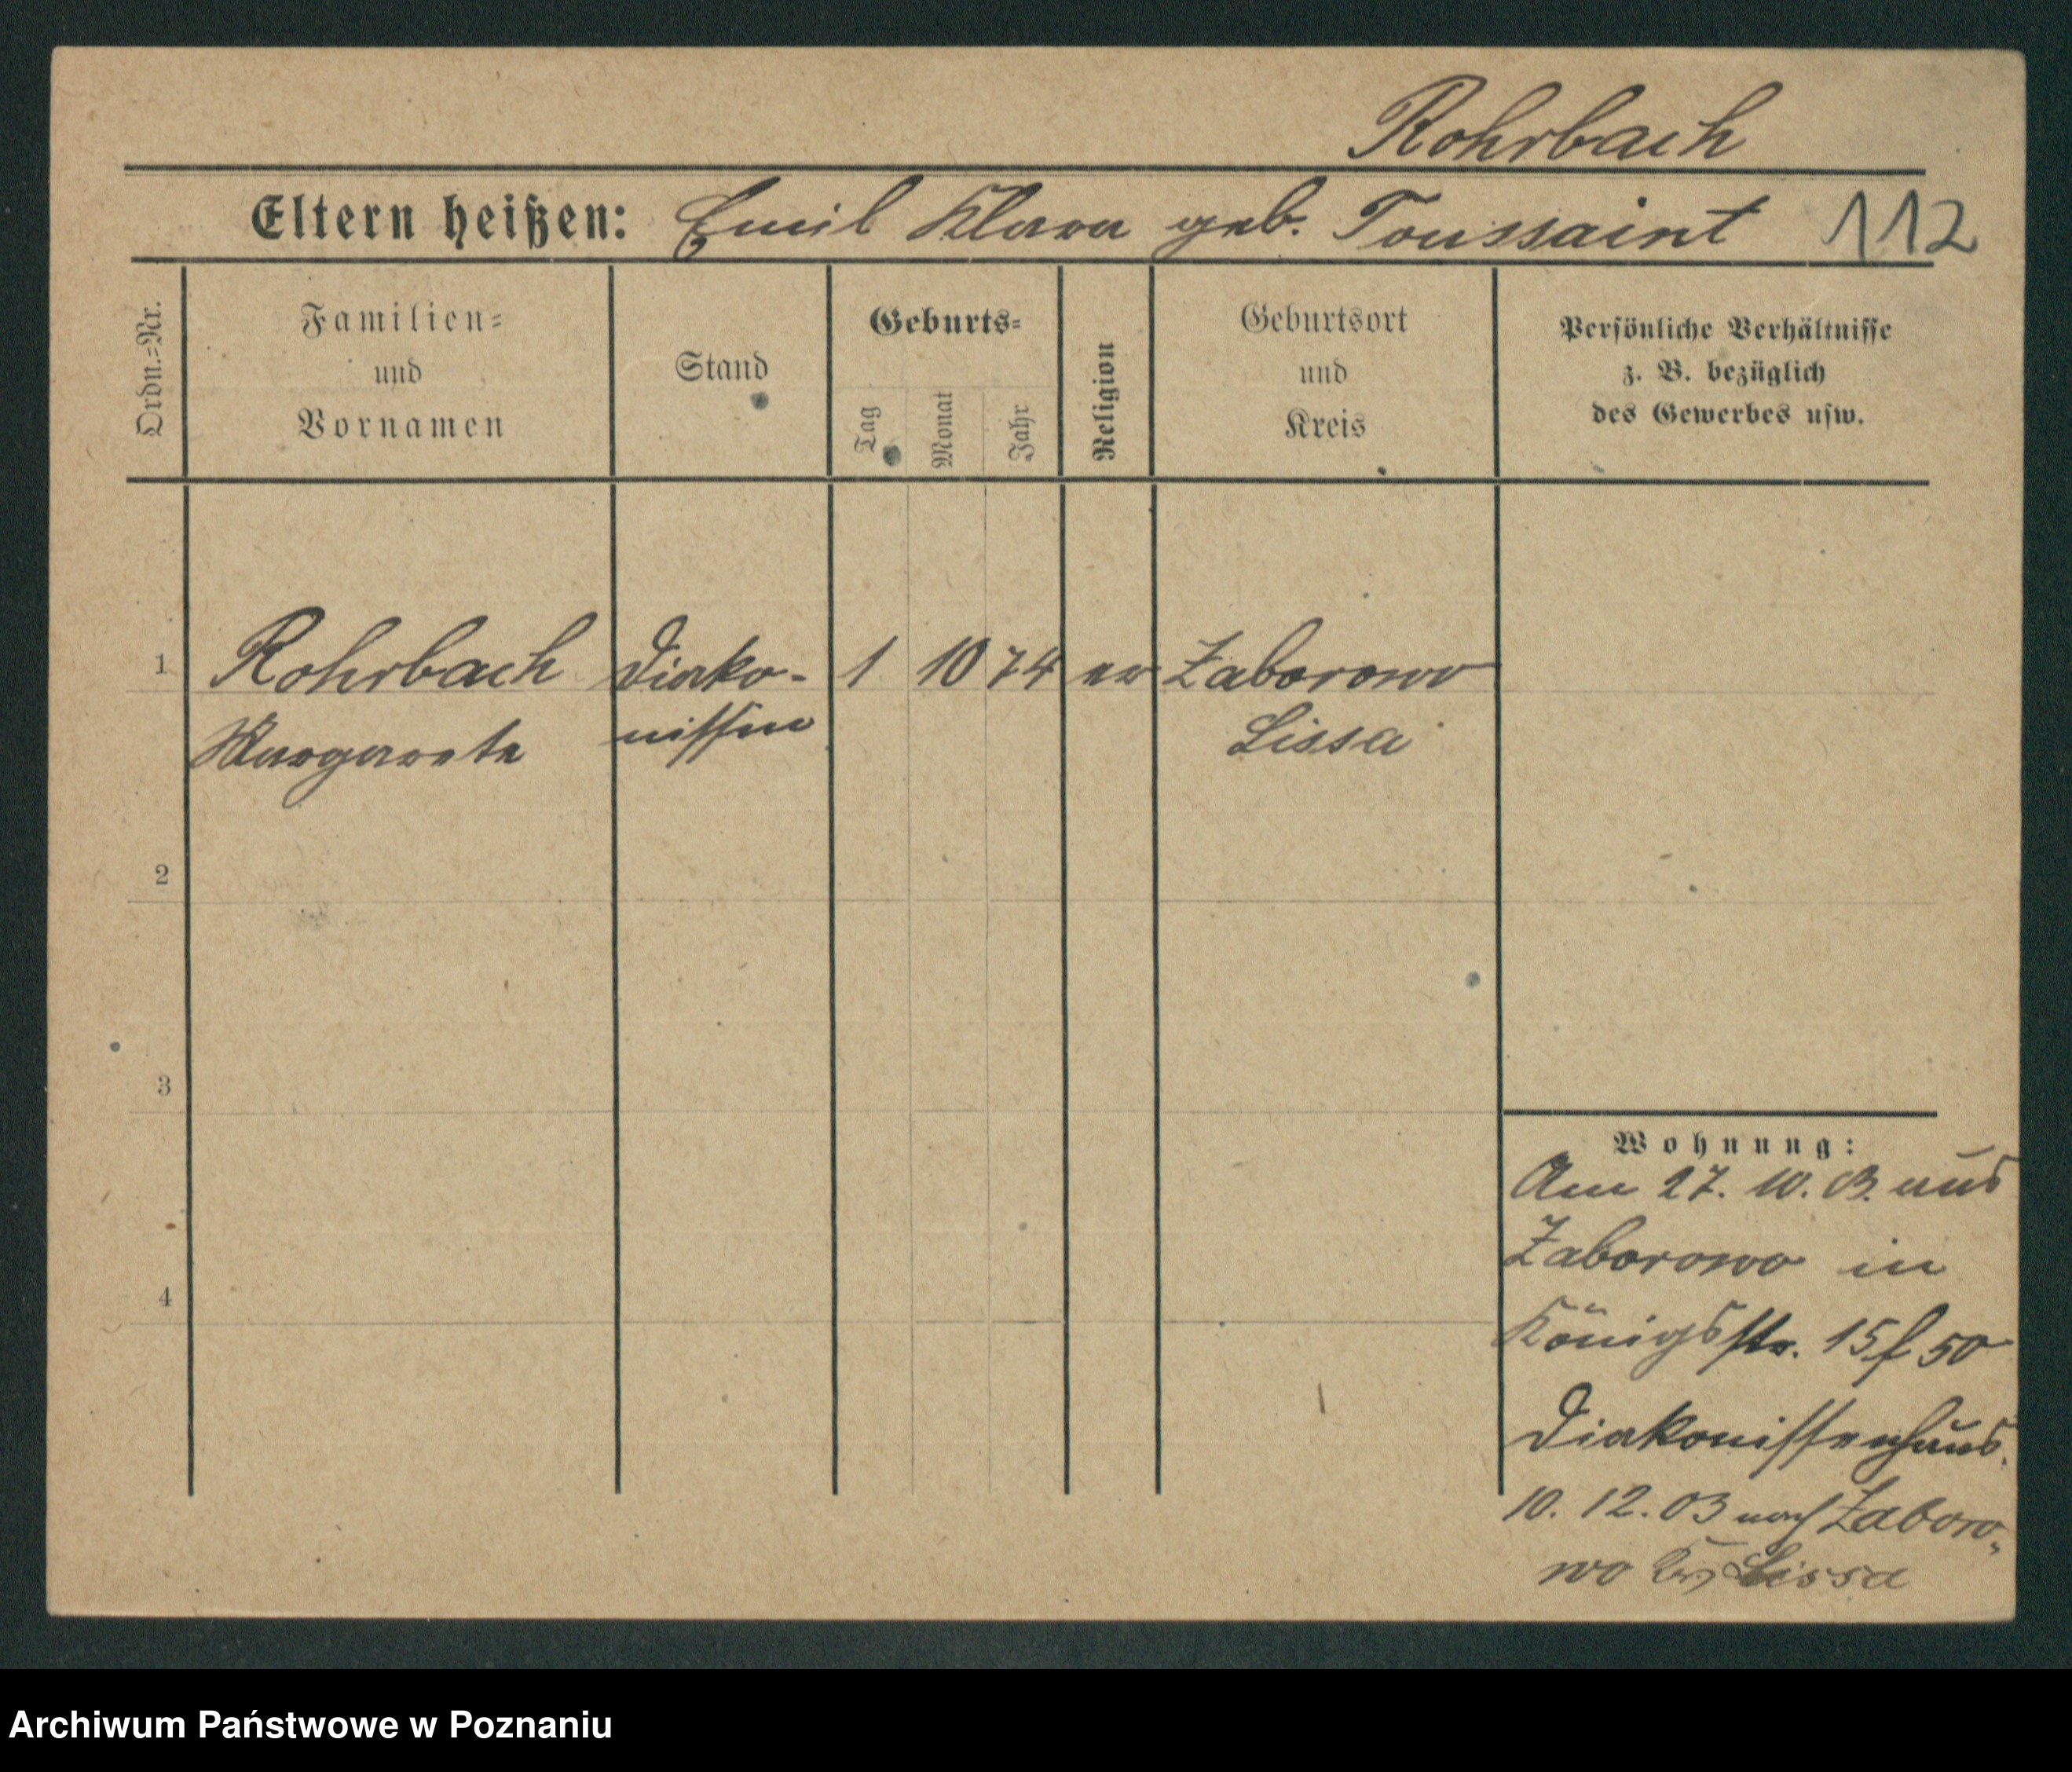 Rohrbach
Eltern heißen: Emil Klara geb. Toussaint 112
Ordn.=Nr.
Familien=
und
Vornamen
Stand
Geburts=
Tag
Monat
Jahr
Religion
Geburtsort
und
Kreis
Persönliche Verhältnisse
z. B. bezüglich
des Gewerbes usw.
1 Rohrbach Diako- 1 10 74 ev Zaborowo
Margarete nissin Lissa
2
3
4
Wohnung:
Am 27. 10. 03. aus
Zaborowo in
Königsstr. 15 f 50
Diakonissenhaus.
10. 12. 03 nach Zaboro„
wo Lissa
Archiwum Państwowe w Poznaniu